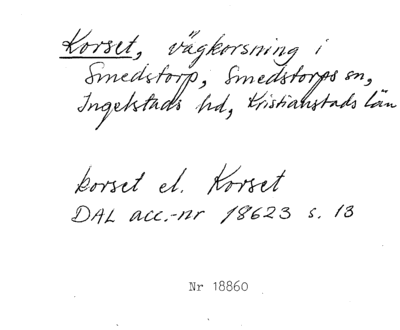 Korset, vägkorsning i
Smedstorp, Smedstorps sn,
Ingelstads hd, Kristianstads län
korset el. Korset
DAL acc.-nr 18623 s. 13
Nr 18860